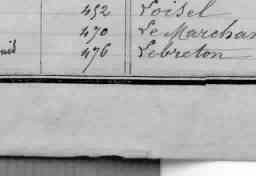 452 Loisel
470 Le Marchan
476 Lebreton